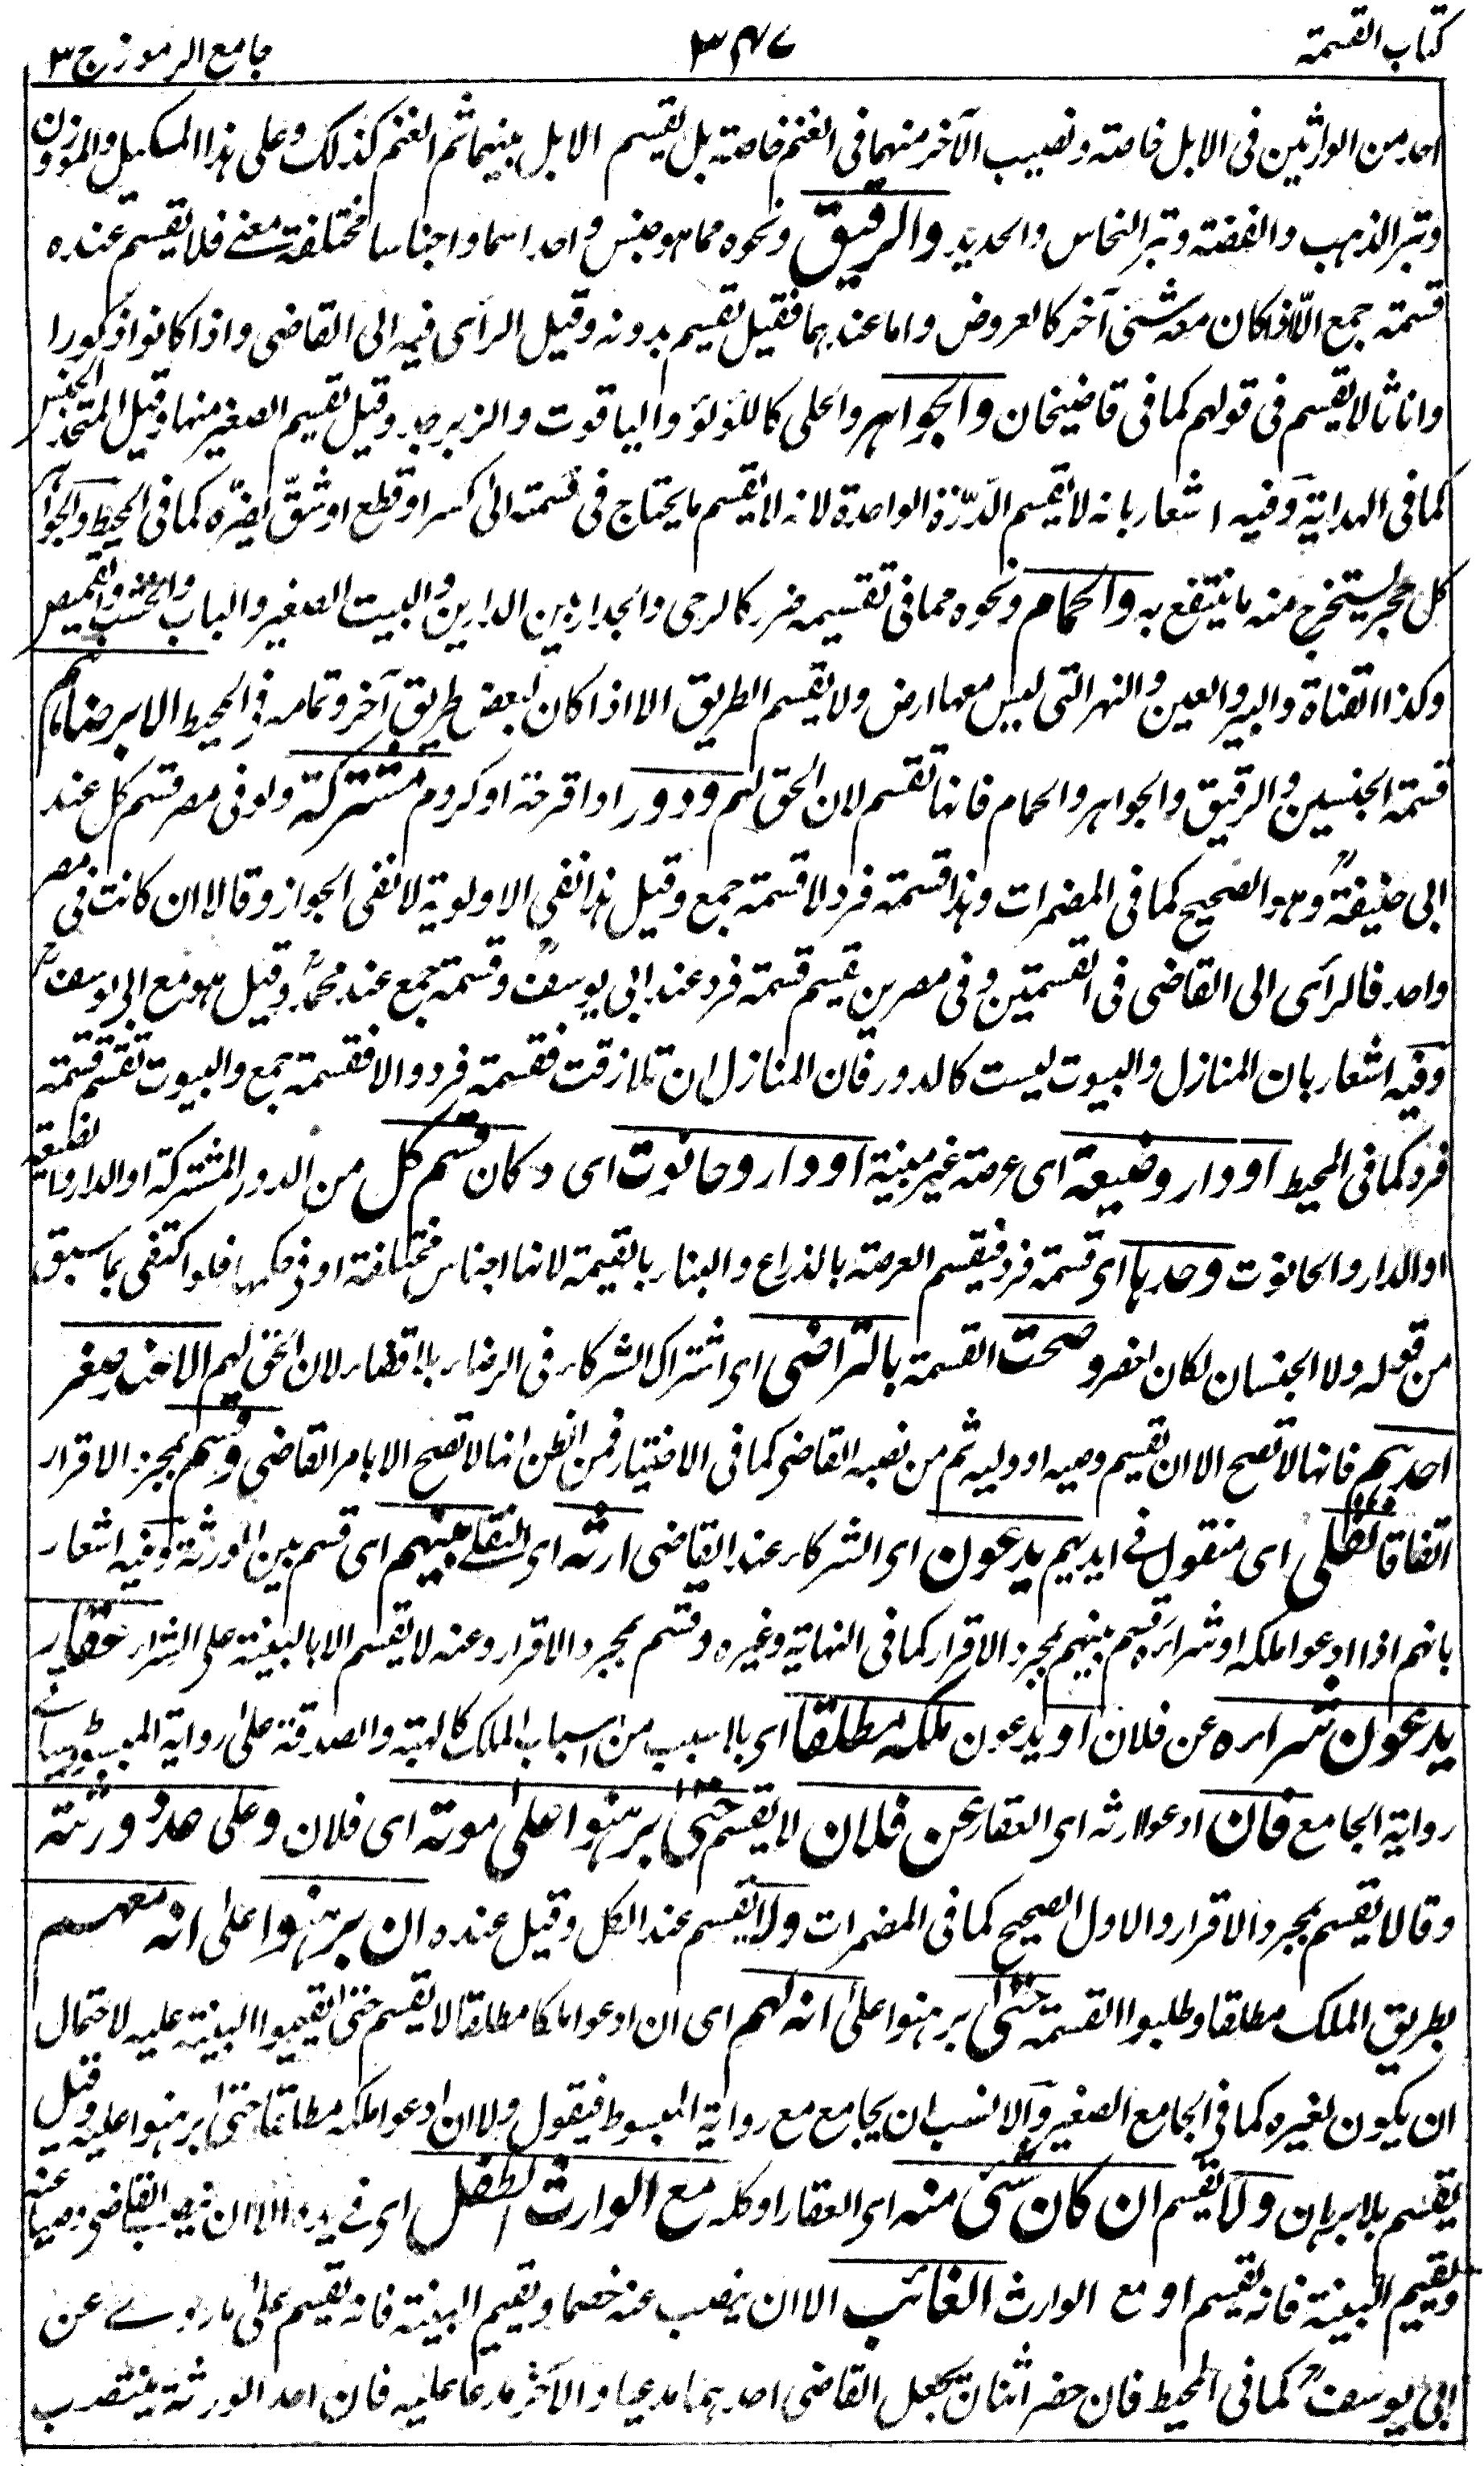 كتاب القسمة
٣٤٧
جامع الرموز ج ٣
احد من الوارثين فى الابل خاصة ونصيب الآخر منهما فى الغنم خاصة بل يقسم الابل بينهما ثم الغنم كذلك وعلى هذا المكيل والموزون
وتبر الذهب والفضة وتبر النحاس والحديد والرقيق ونحوه مما هو جنس واحد اسما واجناسا مختلفة معنے فلا يقسم عنده
قسمة جمع الّا اذا كان معه شئ آخر كالعروض واما عندهما فقيل تقسيم بدونه وقيل الرأى فيه الى القاضى واذا كانوا ذكورا
واناثا لا يقسم فى قولهم كما فى قاضيخان والجواهر والحلى كاللؤلؤ والياقوت والزبرجد وقيل تقسيم الصغير منها وقيل المتحد الجنس
كما فى الهداية وفيه اشعار بانه لا يقسم الدّرّة الواحدة لانه لا يقسم ما يحتاج فى قسمته الى كسر او قطع او شقّ يضرّه كما فى المحيط والجواهر
كل حجر يستخرج منه ما ينتفع به والحمام ونحوه مما فى تقسيمه ضرر كالرحى والجدار بين الدارين والبيت الصغير والباب والخشب والقميص
وكذا القناة والبير والعين والنهر التى ليس معها ارض ولا يقسم الطريق الا اذا كان لبعض طريق آخر وتمامه فے المحيط الا برضاهم
قسمة الجنسين والرقيق والجواهر والحمام فانها تقسم لان الحق لهم ودور او اقرحة او كروم مشتركة ولو فى مصر قسم كل عند
ابى حنيفةؒ وهو الصحيح كما فى المضمرات وهذا قسمة فرد لا قسمة جمع وقيل هذا نفى الاولوية لا نفى الجواز وقالا ان كانت فى مصر
واحد فالرأى الى القاضى فى القسمتين وفى مصرين يقسم قسمة فرد عند ابى يوسفؒ وقسمة جمع عند محمدؒ وقيل هو مع ابى يوسفؒ
وفيه اشعار بان المنازل والبيوت ليست كالدور فان المنازل ان تلازقت فقسمة فرد والا فقسمة جمع والبيوت تقسم قسمة
فرد كما فى المحيط او دار وضيعة اى عرصة غير مبنية او دار وحانوت اى دكان قسم كل من الدور المشتركة او الدار والضيعة
او الدار والحانوت وحدها اى قسمة فرد فيقسم العرصة بالذراع والبناء بالقيمة لانها اجناس مختلفة او فى حكمها فلو اكتفى بما سبق
من قوله ولا الجنسان لكان اخصر وصحت القسمة بالتراضى اى اشتراك الشركاء فى الرضاء بلا قضاء لان الحق لهم الا عند صغر
احدهم فانها لا تصح الا ان يقسم وصيه او وليه ثم من نصبه القاضى كما فى الاختيار فمن الظن انها لا تصح الا بامر القاضى وقسم بمجرد الاقرار
اتفاقا نقلى اى منقول فے ايديهم يدعون اى الشركاء عند القاضى ارثه اى النقلے بينهم اى قسم بين الورثة وفيه اشعار
بانهم اذا ادعوا ملكه او شراءه قسم بينهم بمجرد الاقرار كما فى النهاية وغيره وقسم بمجرد الاقرار وعنه لا يقسم الا بالبينة على الشراء عقار
يدعون شراءه عن فلان او يدعون ملكه مطلقا اى بلا سبب من اسباب الملك كالهبة والصدقة على رواية المبسوط وسياتے
رواية الجامع فان ادعوا ارثه اى العقار عن فلان لا يقسم حتى برهنوا على موته اى فلان وعلى عدد ورثته
وقالا يقسم بمجرد الاقرار والاول الصحيح كما فى المضمرات ولا يقسم عند الكل وقيل عنده ان برهنوا على انه معهم
بطريق الملك مطلقا وطلبوا القسمة حتى برهنوا على انه لهم اى ان ادعوا ملكا مطلقا لا يقسم حتى يقيموا البينة عليه لاحتمال
ان يكون لغيره كما فى الجامع الصغير والانسب ان يجامع مع رواية المبسوط فيقول ولا ان ادعوا ملكه مطلقا حتى برهنوا عليه وقيل
يقسم بلا برهان ولا يقسم ان كان شئ منه اى العقار او كله مع الوارث الطفل اى فے يده الا ان ينصب القاضى وصيا عنه
ويقيم البينة فانه يقسم او مع الوارث الغائب الا ان ينصب عنه خصما ويقيم البينة فانه يقسم على ما روے عن
ابى يوسفؒ كما فى المحيط فان حضر اثنان يجعل القاضى احدهما مدعيا والآخر مدعا عليه فان احد الورثة ينتصب